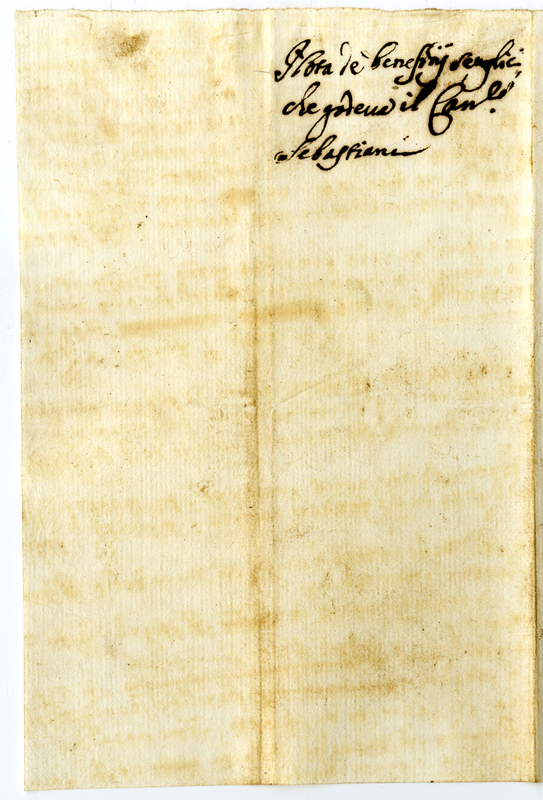 Nota de benefitij semplici
che godeua il Can.co
Sebastiani